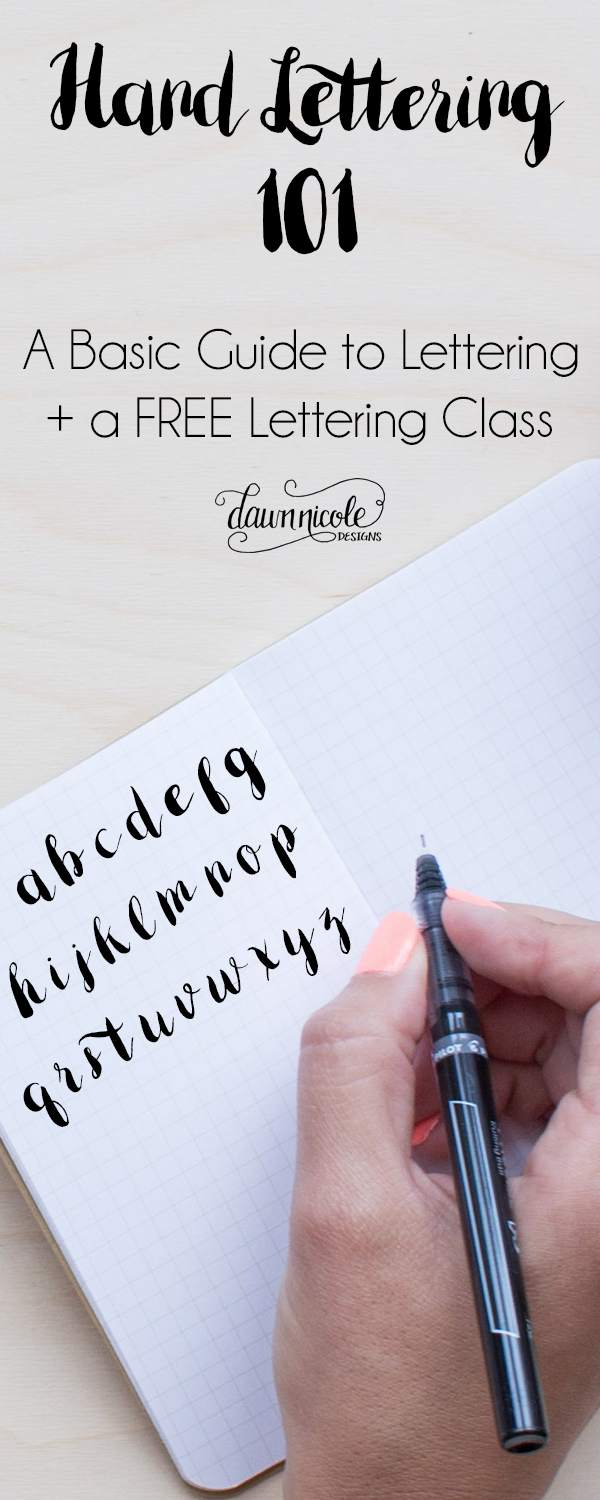 Hand Lettering
101
A Basic Guide to Lettering
+ a FREE Lettering Class
dawn nicole
DESIGNS
a b c d e f g
h i j k l m n o p
q r s t u v w x y z
PILOT